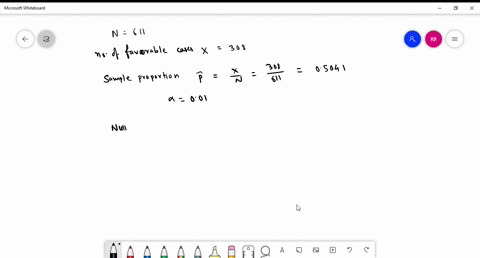 Microsoft Whiteboard
RR
N = 611
no. of favorable cases X = 308
Sample proportion p̂ = X/N = 308/611 = 0.5041
α = 0.01
Null